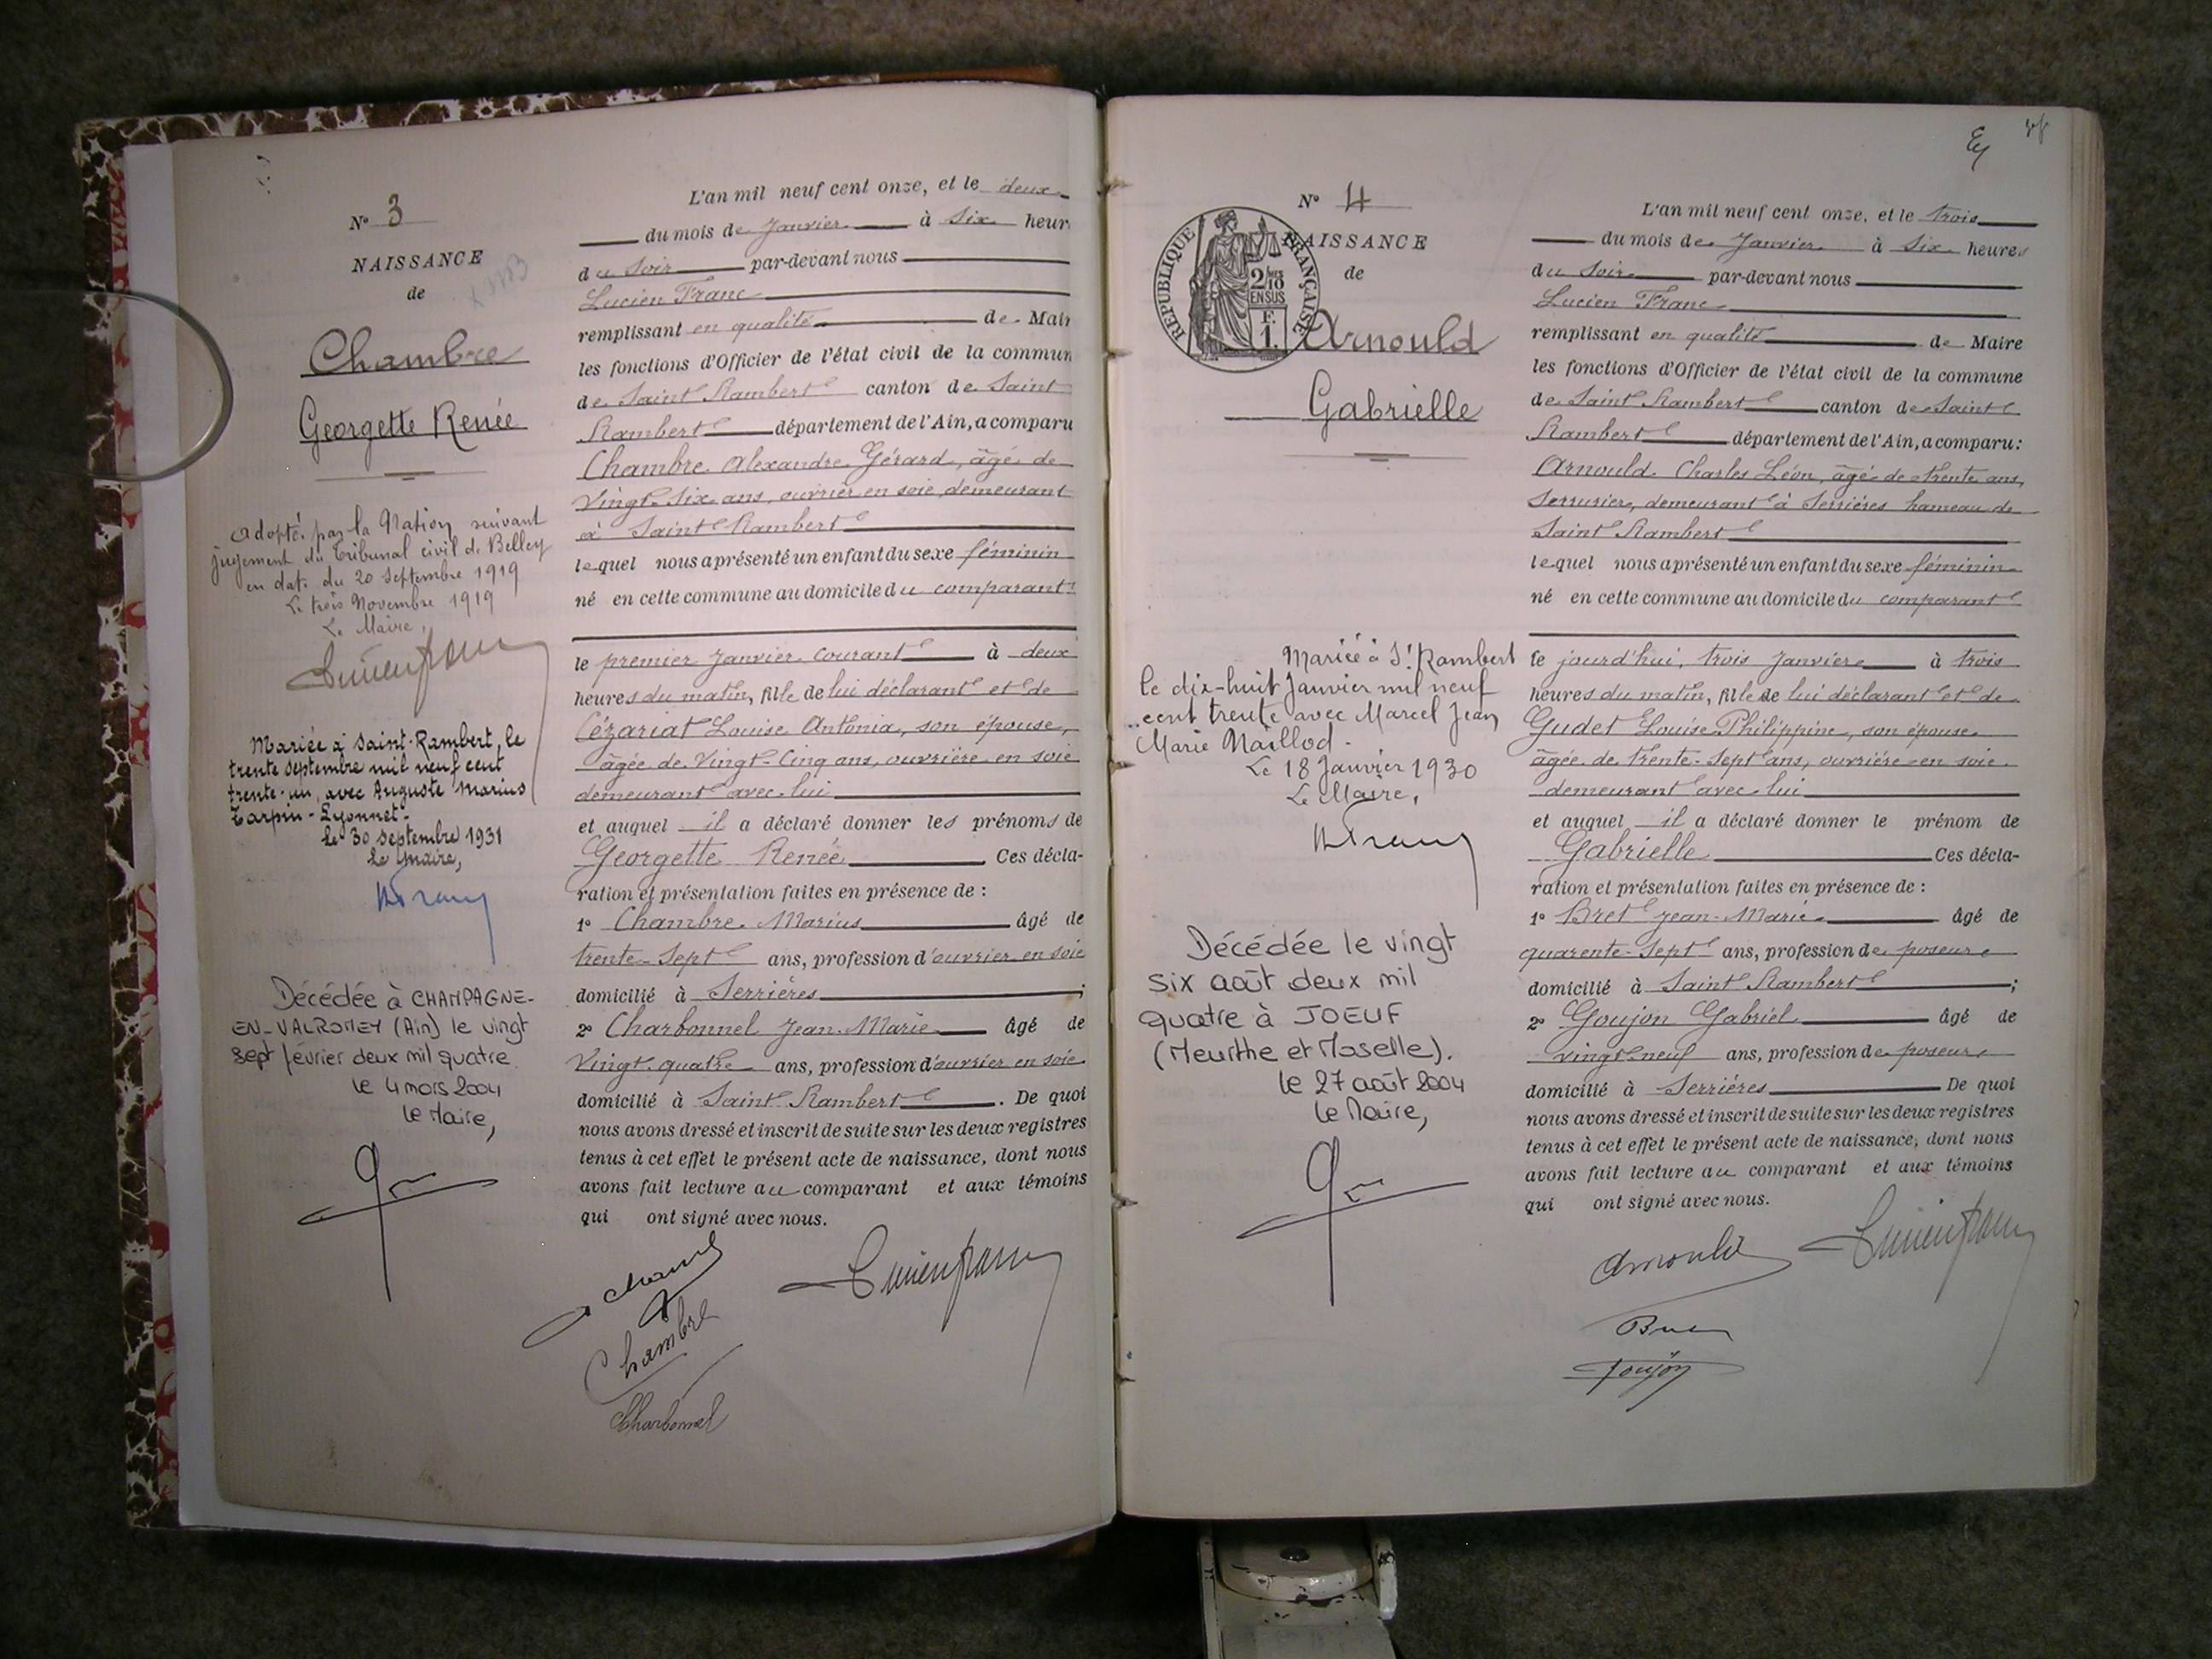 N° 3
NAISSANCE
de
Chambre
Georgette Renée
Adopté par la Nation suivant
jugement du Tribunal civil de Belley
en date du 20 Septembre 1919
Le trois Novembre 1919
Le Maire,
Lucien Franc
Mariée à Saint-Rambert, le
trente septembre mil neuf cent
trente-un, avec Auguste Marius
Tarpin-Lyonnet.
Le 30 septembre 1931
Le Maire,
Décédée à CHAMPAGNE-
EN-VALROMEY (Ain) le vingt
sept février deux mil quatre
le 4 mars 2004
le Maire,
L'an mil neuf cent onze, et le deux
du mois de Janvier à Six heur
du Soir par-devant nous
Lucien Franc
remplissant en qualité de Mair
les fonctions d'Officier de l'état civil de la commun
de Saint Rambert canton de Saint
Rambert département de l'Ain, a comparu
Chambre Alexandre Gérard, âgé de
Vingt-Six ans, ouvrier en soie, demeurant
à Saint Rambert
lequel nous a présenté un enfant du sexe féminin
né en cette commune au domicile du comparant
le premier Janvier courant à deux
heures du matin, fille de lui déclarant et de
Cézariat Louise Antonia, son épouse,
âgée de Vingt-Cinq ans, ouvrière en soie
demeurant avec lui
et auquel il a déclaré donner les prénoms de
Georgette Renée Ces décla-
ration et présentation faites en présence de :
1° Chambre Marius âgé de
trente-Sept ans, profession d'ouvrier en soie
domicilié à Serrières ;
2° Charbonnel Jean-Marie âgé de
Vingt-quatre ans, profession d'ouvrier en soie
domicilié à Saint Rambert . De quoi
nous avons dressé et inscrit de suite sur les deux registres
tenus à cet effet le présent acte de naissance, dont nous
avons fait lecture au comparant et aux témoins
qui ont signé avec nous.
Lucien Franc
Chambre
Charbonnel
N° 4
NAISSANCE
de
RÉPUBLIQUE FRANÇAISE
2/10
EN SUS
F.
1.
Arnould
Gabrielle
Mariée à St Rambert
le dix-huit Janvier mil neuf
cent trente avec Marcel Jean
Marie Maillod.
Le 18 Janvier 1930
Le Maire,
Décédée le vingt
six août deux mil
quatre à JOEUF
(Meurthe et Moselle).
le 27 août 2004
le Maire,
L'an mil neuf cent onze, et le trois
du mois de Janvier à Six heures
du Soir par-devant nous
Lucien Franc
remplissant en qualité de Maire
les fonctions d'Officier de l'état civil de la commune
de Saint Rambert canton de Saint
Rambert département de l'Ain, a comparu :
Arnould Charles Léon, âgé de trente ans,
Serrurier, demeurant à Serrières hameau de
Saint Rambert
lequel nous a présenté un enfant du sexe féminin
né en cette commune au domicile du comparant
le jourd'hui, trois Janvier à trois
heures du matin, fille de lui déclarant et de
Gudet Louise Philippine, son épouse
âgée de trente-Sept ans, ouvrière en soie
demeurant avec lui
et auquel il a déclaré donner le prénom de
Gabrielle Ces décla-
ration et présentation faites en présence de :
1° Bret Jean-Marie âgé de
quarente-Sept ans, profession de poseur
domicilié à Saint Rambert ;
2° Goujon Gabriel âgé de
vingt-neuf ans, profession de poseur
domicilié à Serrières De quoi
nous avons dressé et inscrit de suite sur les deux registres
tenus à cet effet le présent acte de naissance, dont nous
avons fait lecture au comparant et aux témoins
qui ont signé avec nous.
Arnould Lucien Franc
Goujon